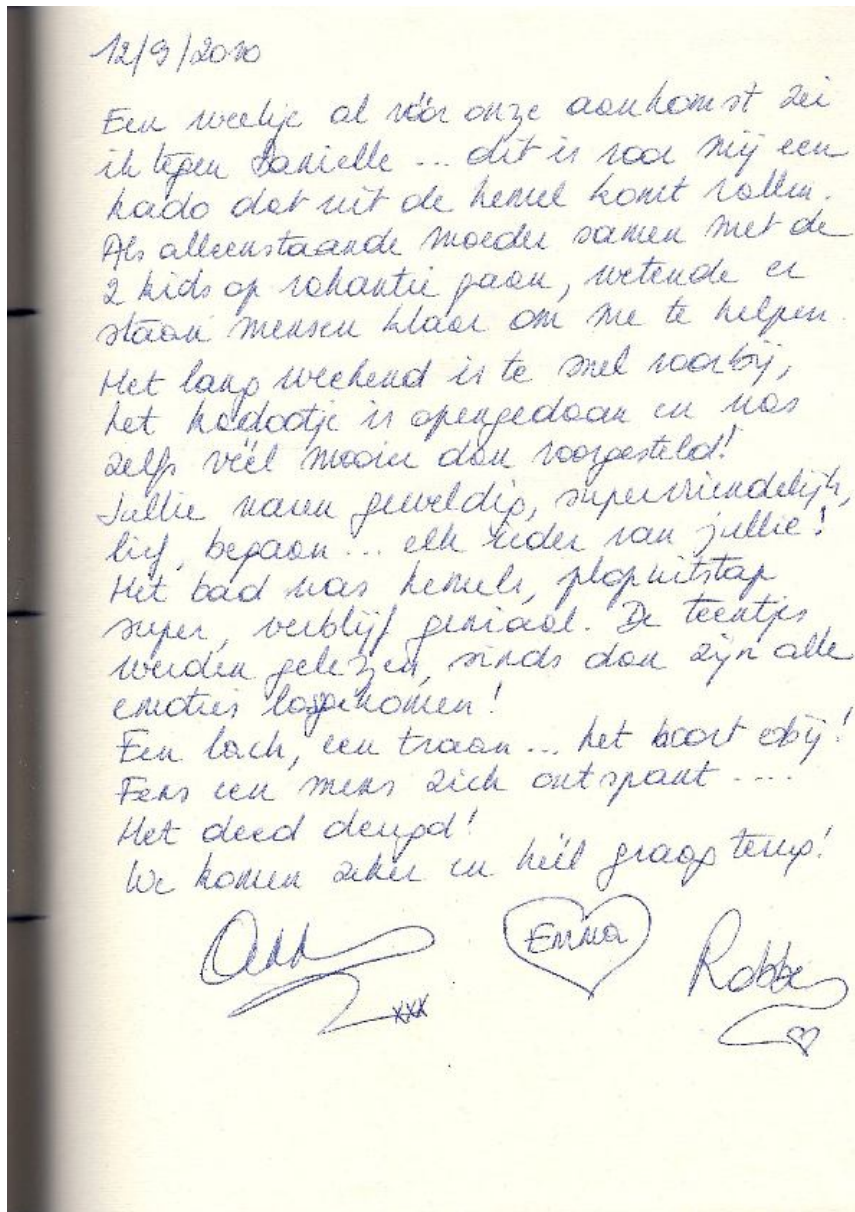 12/9/2010
Een weekje al vóór onze aankomst zei
ik tegen Danielle ... dit is voor mij een
kado dat uit de hemel komt vallen.
Als alleenstaande moeder samen met de
2 kids op vakantie gaan, wetende er
staan mensen klaar om me te helpen.
Het lang weekend is te snel voorbij,
het kadootje is opengedaan en was
zelfs véél mooier dan voorgesteld!
Jullie waren geweldig, supervriendelijk,
lief, begaan ... elk ieder van jullie!
Het bad was hemels, plopuitstap
super, verblijf geniaal. De teentjes
werden gelezen, sinds dan zijn alle
emoties losgekomen!
Een lach, een traan ... het hoort erbij!
Eens een mens zich ontspant ....
Het deed deugd!
We komen zeker en héél graag terug!
Ann Emma Robbe
xxx